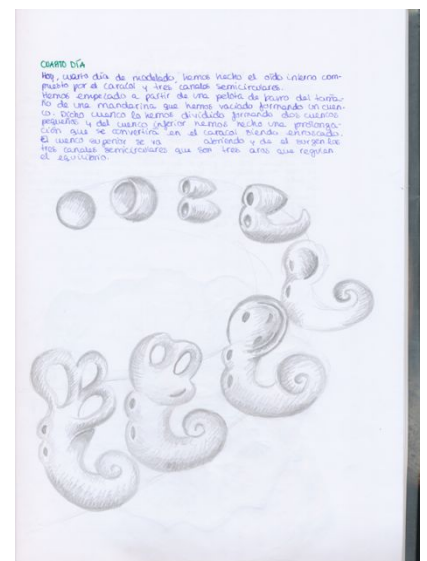 CUARTO DÍA
Hoy, cuarto día de modelado, hemos hecho el oído interno com-
puesto por el caracol y tres canales semicirculares.
Hemos empezado a partir de una pelota de barro del tama-
ño de una mandarina que hemos vaciado formando un cuen-
co. Dicho cuenco lo hemos dividido formando dos cuencos
pequeños y del cuenco inferior hemos hecho una prolonga-
ción que se convertirá en el caracol siendo enroscado.
El cuenco superior se va abriendo y de él surgen los
tres canales semicirculares que son tres aros que regulan
el equilibrio.